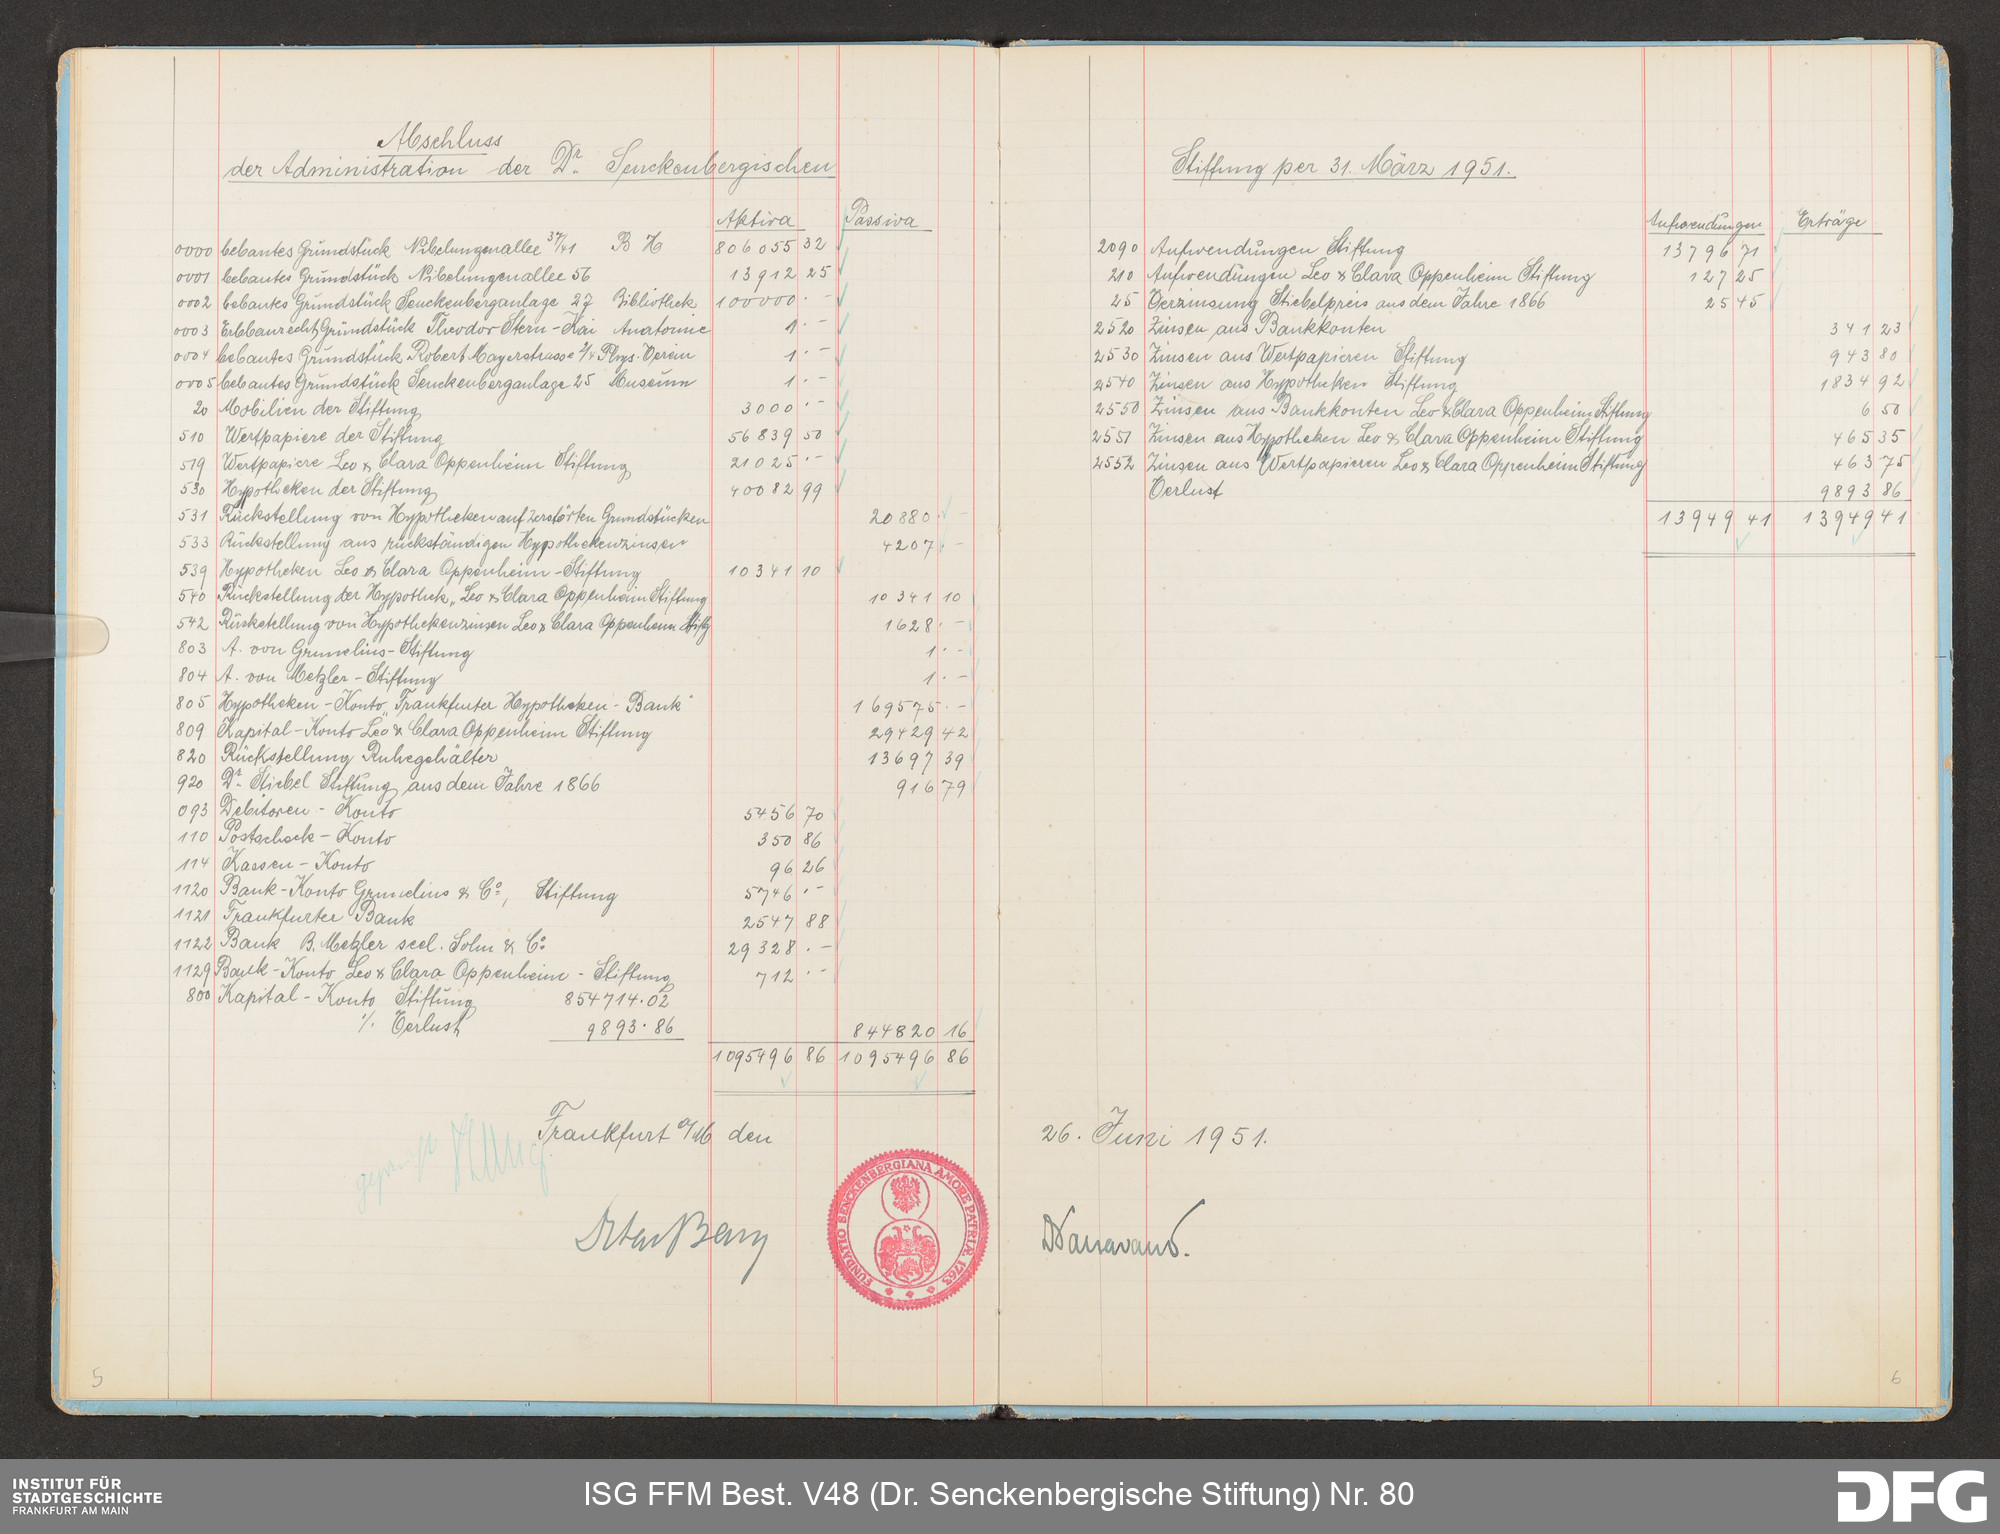 Abschluss
der Administration der Dr. Senckenbergischen
Aktiva Passiva
0000 bebautes Grundstück Nibelungenallee 37/41 B H 806055 32
0001 bebautes Grundstück Nibelungenallee 56 13912 25
0002 bebautes Grundstück Senckenberganlage 27 Bibliothek 100000.-
0003 Erbbaurecht Grundstück Theodor Stern-Kai Anatomie 1.-
0004 bebautes Grundstück Robert Mayerstrasse 2/4 Phys. Verein 1.-
0005 bebautes Grundstück Senckenberganlage 25 Museum 1.-
20 Mobilien der Stiftung 3000.-
510 Wertpapiere der Stiftung 56839 50
519 Wertpapiere Leo & Clara Oppenheim Stiftung 21025.-
530 Hypotheken der Stiftung 40082 99
531 Rückstellung von Hypotheken auf zerstörten Grundstücken 20880.-
533 Rückstellung aus rückständigen Hypothekenzinsen 4207.-
539 Hypotheken Leo & Clara Oppenheim-Stiftung 10341 10
540 Rückstellung der Hypothek „Leo & Clara Oppenheim Stiftung 10341 10
542 Rückstellung von Hypothekenzinsen Leo & Clara Oppenheim Stiftg 1628.-
803 A. von Grunelius-Stiftung 1.-
804 A. von Metzler-Stiftung 1.-
805 Hypotheken-Konto „Frankfurter Hypotheken-Bank" 169575.-
809 Kapital-Konto Leo & Clara Oppenheim Stiftung 29429 42
820 Rückstellung Ruhegehälter 13697 39
920 Dr. Stiebel Stiftung aus dem Jahre 1866 916 79
093 Debitoren-Konto 5456 70
110 Postscheck-Konto 350 86
114 Kassen-Konto 96 26
1120 Bank-Konto Grunelius & Co, Stiftung 5746.-
1121 Frankfurter Bank 2547 88
1122 Bank B. Metzler seel. Sohn & Co. 29328.-
1129 Bank-Konto Leo & Clara Oppenheim-Stiftung 712.-
800 Kapital-Konto Stiftung 854714.02
./. Verlust 9893.86 844820 16
1095496 86 1095496 86
Frankfurt a/M den
geprüft
FUNDATIO SENCKENBERGIANA AMORE PATRIAE 1763
5
Stiftung per 31. März 1951.
Aufwendungen Erträge
2090 Aufwendungen Stiftung 13796 71
210 Aufwendungen Leo & Clara Oppenheim Stiftung 127 25
25 Verzinsung Stiebelpreis aus dem Jahre 1866 25 45
2520 Zinsen aus Bankkonten 341 23
2530 Zinsen aus Wertpapieren Stiftung 943 80
2540 Zinsen aus Hypotheken Stiftung 1834 92
2550 Zinsen aus Bankkonten Leo & Clara Oppenheim Stiftung 6 50
2551 Zinsen aus Hypotheken Leo & Clara Oppenheim Stiftung 465 35
2552 Zinsen aus Wertpapieren Leo & Clara Oppenheim Stiftung 463 75
Verlust 9893 86
13949 41 13949 41
26. Juni 1951.
6
INSTITUT FÜR
STADTGESCHICHTE
FRANKFURT AM MAIN
ISG FFM Best. V48 (Dr. Senckenbergische Stiftung) Nr. 80
DFG